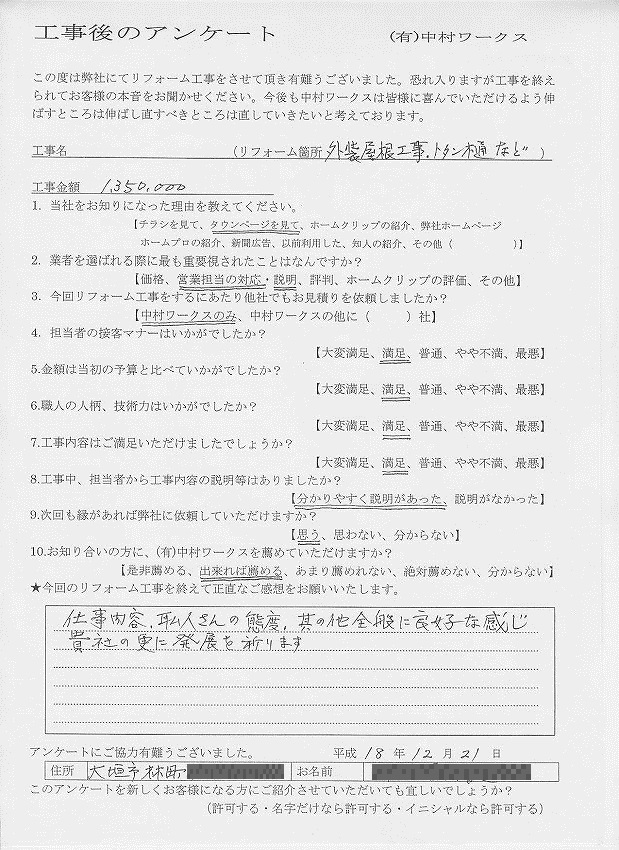 工事後のアンケート (有)中村ワークス
この度は弊社にてリフォーム工事をさせて頂き有難うございました。恐れ入りますが工事を終え
られてお客様の本音をお聞かせください。今後も中村ワークスは皆様に喜んでいただけるよう伸
ばすところは伸ばし直すべきところは直していきたいと考えております。
工事名 (リフォーム箇所 外装屋根工事、トタン樋など )
工事金額 1,350,000
1. 当社をお知りになった理由を教えてください。
【チラシを見て、タウンページを見て、ホームクリップの紹介、弊社ホームページ
ホームプロの紹介、新聞広告、以前利用した、知人の紹介、その他( )】
2. 業者を選ばれる際に最も重要視されたことはなんですか?
【価格、営業担当の対応・説明、評判、ホームクリップの評価、その他】
3. 今回リフォーム工事をするにあたり他社でもお見積りを依頼しましたか?
【中村ワークスのみ、中村ワークスの他に( )社】
4. 担当者の接客マナーはいかがでしたか?
【大変満足、満足、普通、やや不満、最悪】
5.金額は当初の予算と比べていかがでしたか?
【大変満足、満足、普通、やや不満、最悪】
6.職人の人柄、技術力はいかがでしたか?
【大変満足、満足、普通、やや不満、最悪】
7.工事内容はご満足いただけましたでしょうか?
【大変満足、満足、普通、やや不満、最悪】
8.工事中、担当者から工事内容の説明等はありましたか?
【分かりやすく説明があった、説明がなかった】
9.次回も縁があれば弊社に依頼していただけますか?
【思う、思わない、分からない】
10.お知り合いの方に、(有)中村ワークスを薦めていただけますか?
【是非勧める、出来れば薦める、あまり薦めれない、絶対薦めない、分からない】
★今回のリフォーム工事を終えて正直なご感想をお願いいたします。
仕事内容、職人さんの態度、其の他全般に良好な感じ
貴社の更に発展を祈ります
アンケートにご協力有難うございました。 平成 18 年 12 月 21 日
住所 大垣市林町 お名前
このアンケートを新しくお客様になる方にご紹介させていただいても宜しいでしょうか?
(許可する・名字だけなら許可する・イニシャルなら許可する)